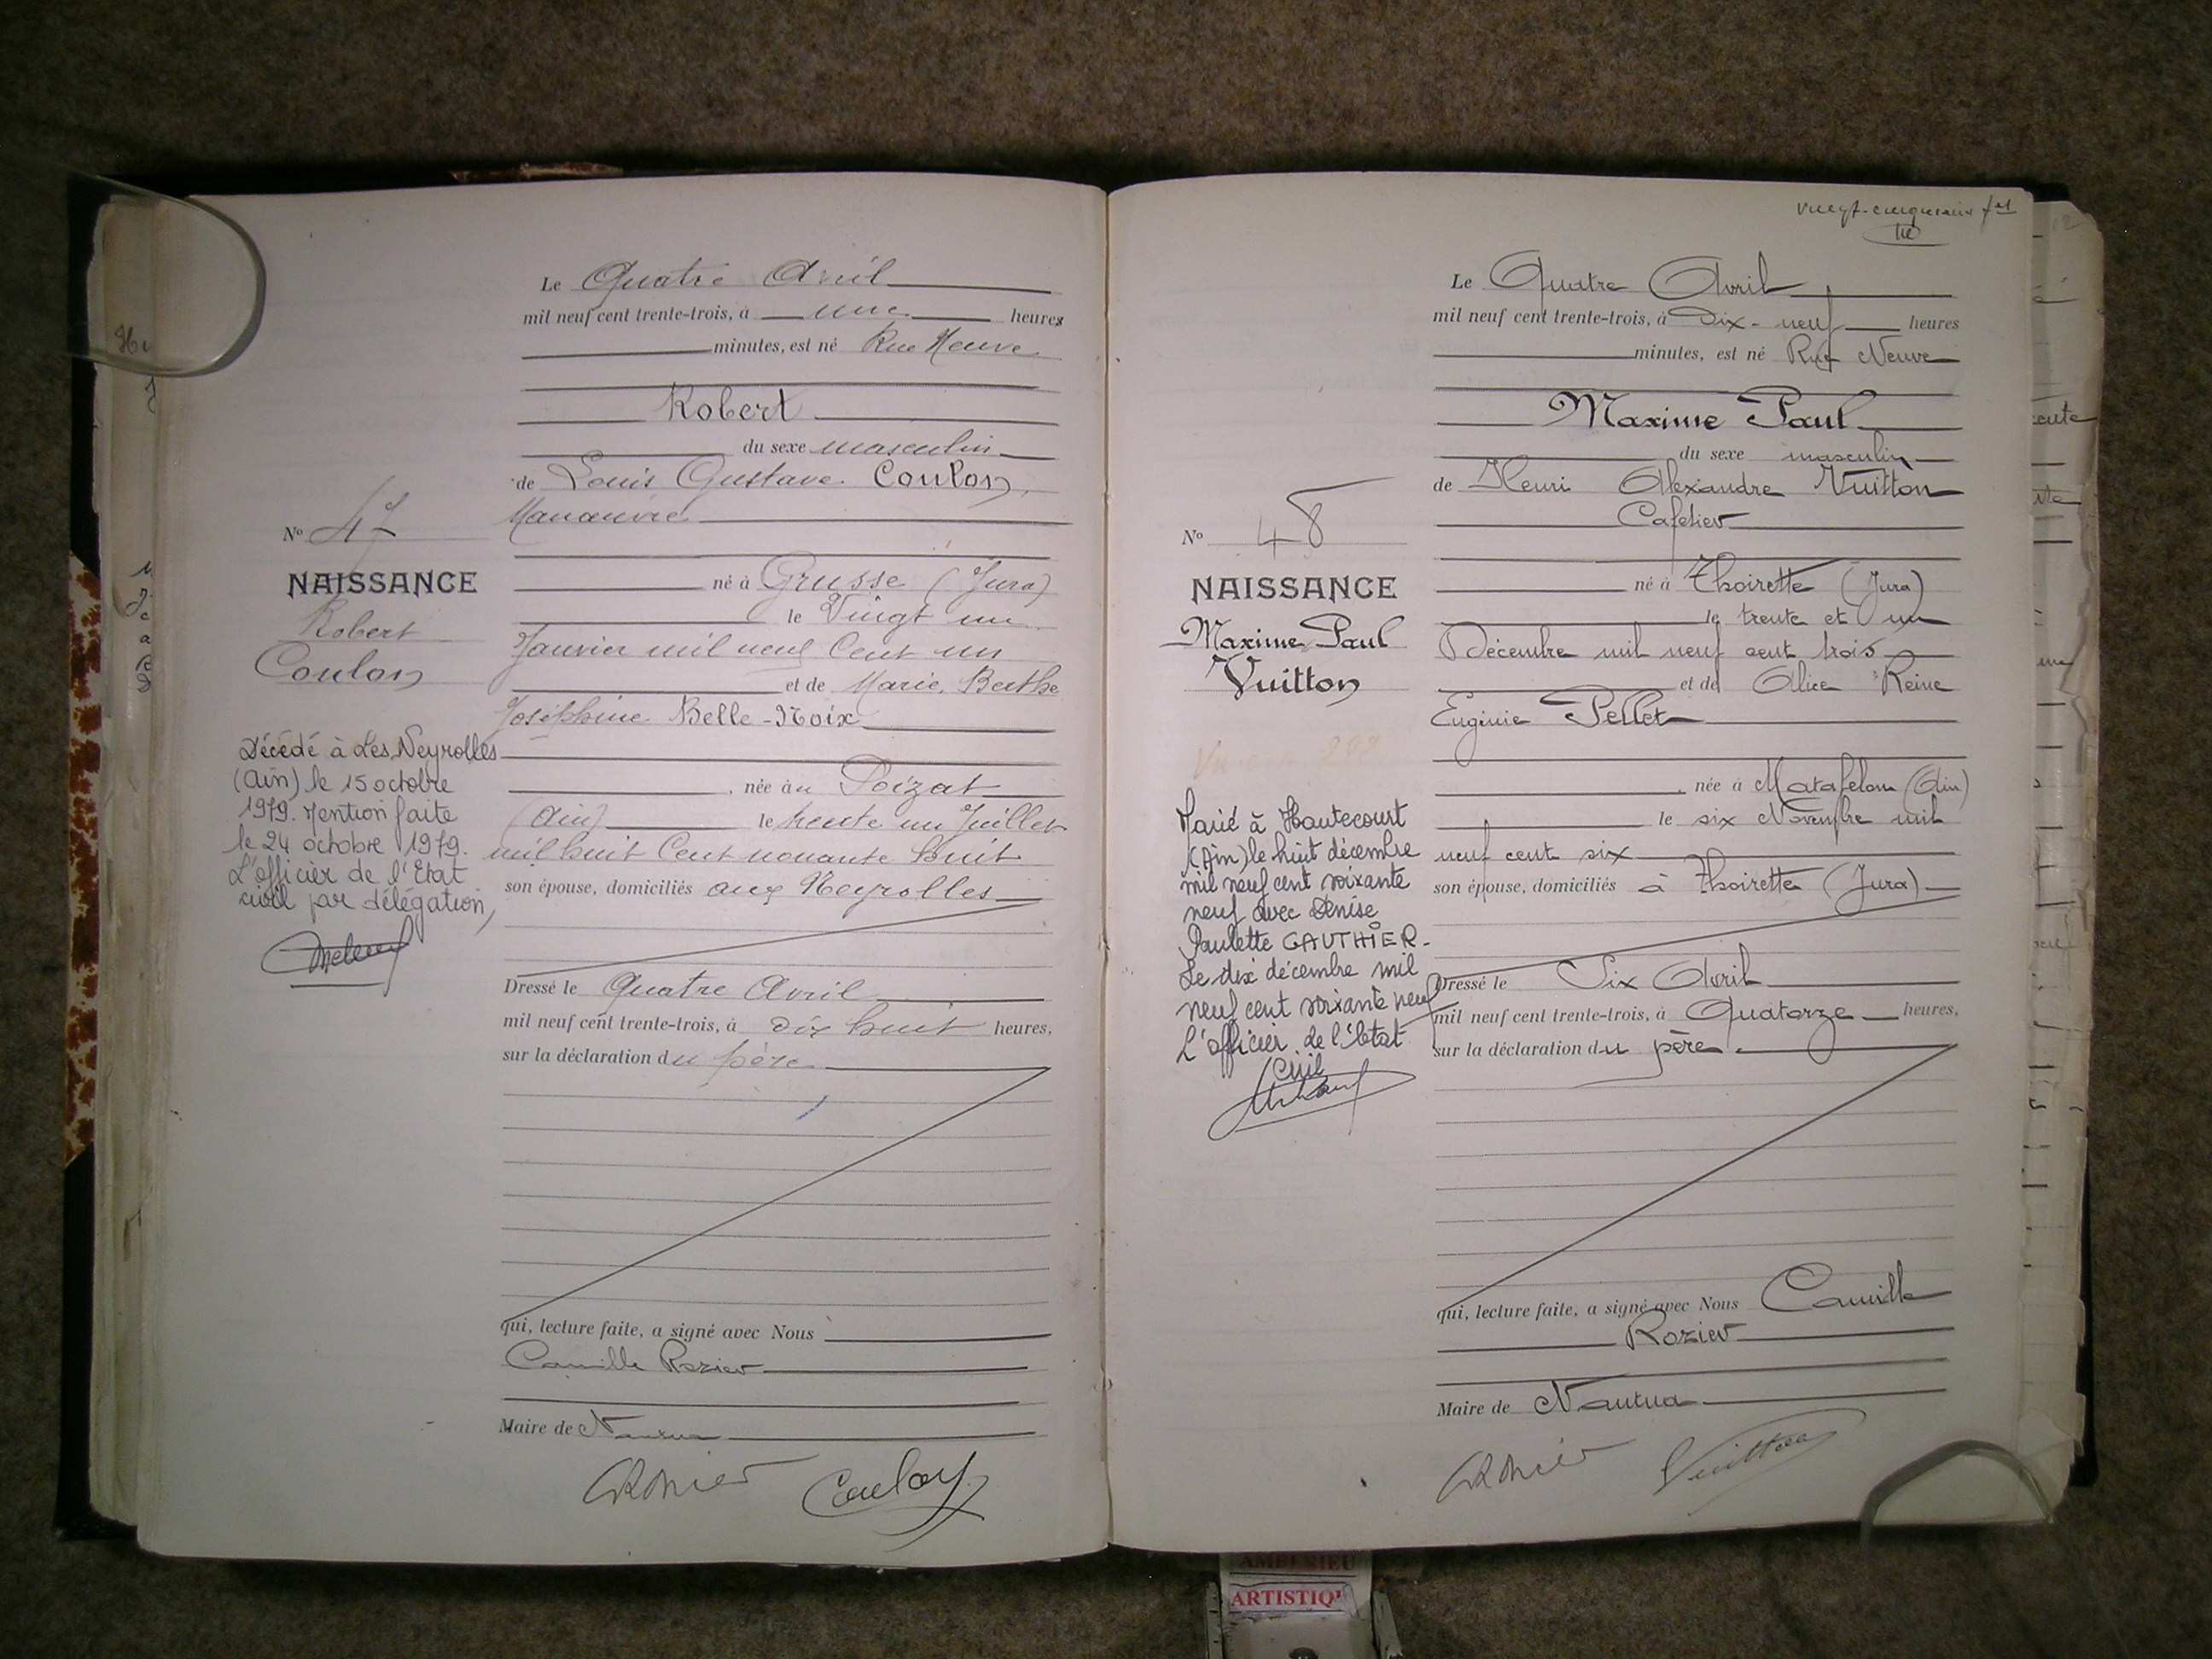 Le Quatre Avril
mil neuf cent trente-trois, à une heures
minutes, est né Rue Neuve
Robert
du sexe masculin
de Louis Gustave Coulon,
Manœuvre
né à Grusse (Jura)
le Vingt un
Janvier mil neuf Cent un
et de Marie, Berthe
Joséphine Belle-Noix
née au Poizat
(Ain) le trente un Juillet
mil huit Cent nonante huit
son épouse, domiciliés aux Neyrolles
Dressé le Quatre Avril
mil neuf cent trente-trois, à dix huit heures,
sur la déclaration du père
qui, lecture faite, a signé avec Nous
Camille Rozier
Maire de Nantua
Coulon
No 47
NAISSANCE
Robert
Coulon
Décédé à Les Neyrolles
(Ain) le 15 octobre
1979. Mention faite
le 24 octobre 1979.
L'officier de l'Etat
civil par délégation,
Le Quatre Avril
mil neuf cent trente-trois, à Dix-neuf heures
minutes, est né Rue Neuve
Maxime Paul
du sexe masculin
de Henri Alexandre Vuitton
Cafetier
né à Thoirette (Jura)
le trente et un
Décembre mil neuf cent trois
et de Alice Reine
Eugénie Pellet
née à Matafelon (Ain)
le six Novembre mil
neuf cent six
son épouse, domiciliés à Thoirette (Jura)
Dressé le Six Avril
mil neuf cent trente-trois, à Quatorze heures,
sur la déclaration du père.
qui, lecture faite, a signé avec Nous Camille
Rozier
Maire de Nantua
Vuitton
No 48
NAISSANCE
Maxime Paul
Vuitton
Marié à Hautecourt
(Ain) le huit décembre
mil neuf cent soixante
neuf avec Denise
Paulette GAUTHIER.
Le dix décembre mil
neuf cent soixante neuf
L'officier de l'Etat
Civil
ARTISTIQ